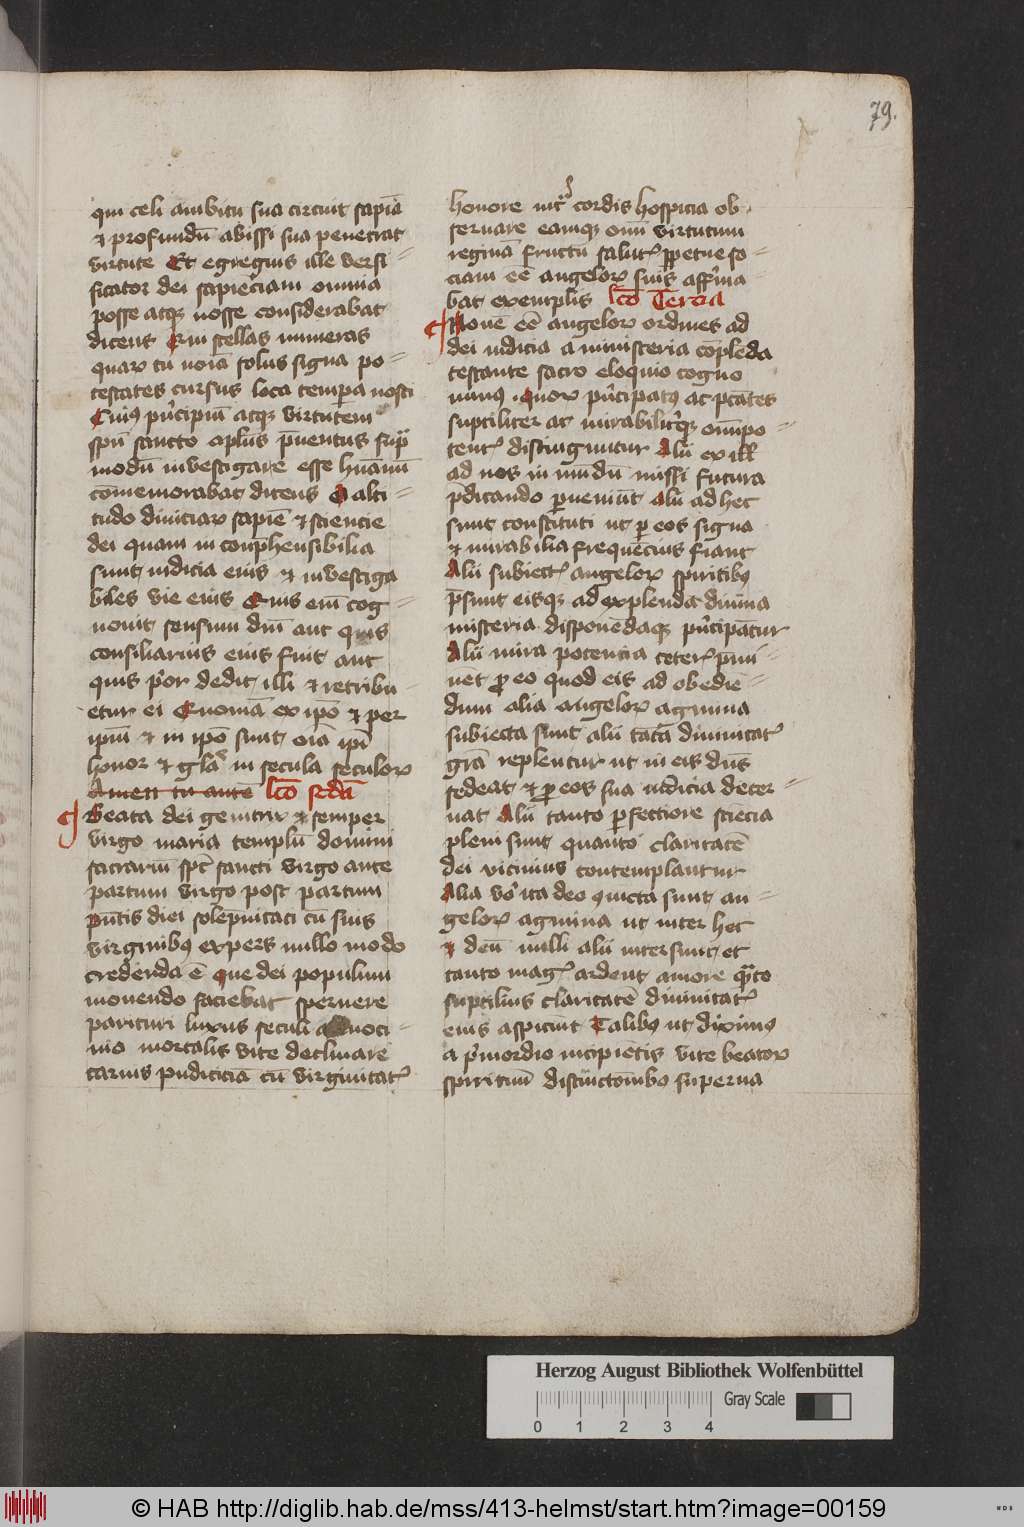 79.
qui celi ambitū sua circuit sapīa
⁊ profundū abissi sua penetrat
virtute Et egregius ille versi-
ficator dei sapieciam omnia
posse atqꝫ nosse considerabat
dicens Qui stellas numeras
quaꝝ tu noīa solus signa po-
testates cursus loca tempa nosti
Cuiꝰ pͥncipiū atqꝫ virtutem
spū sancto aplūs
modū investigare esse hūanū
cōmemorabat dicens O alti-
tudo diviciaꝝ sapiē ⁊ sciencie
dei quam inconp̄hensibilia
sunt iudicia eius ⁊ investiga
biles vie eius Quis em̄ cog-
novit sensum dn̄i aut quis
consiliarius eius fuit aut
quis pͥor dedit illi ⁊ retribu-
etur ei Qm̄ oīa ex ipō ⁊ per
ipm̄ ⁊ in ipō sunt oīa ipī
honor ⁊ glā in secula seculoꝝ
Amen tu autē lcō scdā
Beata dei genitrix ⁊ semper
virgo maria templū domini
sacrariū spc̄ sancti virgo ante
partum virgo post partum
pn̄tis diei solepnitati cū suis
virginibꝰ expers nullo modo
credenda ē que dei populum
monendo faciebat spernere
parituri luxus seculi
mortalis vite declinare
carius pudicicia cū virginitatꝭ
honore intͣ cordis hospicia ob-
servare eamqꝫ om̄ virtutum
reginā fructū salutꝭ ꝑpetue so-
ciam eē angeloꝝ suis affirma-
bat exemplis lcō Tercia
Novē eē angeloꝝ ordines ad
dei iudicia a ministeria cōplēda
testante sacro eloquio cogno
vimꝰ quoꝝ pͥncipatꝰ ac ptātes
suptiliter ac mirabiliterqꝫ omīpo-
tentꝭ distinguntur Alii ex ill̄
ad nos in mūdū missi futura
p̄dicando ꝑveniūt alii ad hec
sunt constituti ut ꝑ eos signa
⁊ mirabilia frequēcius fiant
Alii subiectꝭ angeloꝝ spiritibꝰ
p̄sunt eisqꝫ ad explendā divina
misteria disponēdaqꝫ pͥncipātur
Alii mira potencia ceterꝭ p̄mi-
net ꝓ eo quod eis ad obediē-
dum alia angeloꝝ agmina
subiecta sunt alii tāta divinitatꝭ
grā replentur ut in eis dn̄s
sedeat ⁊ ꝑ eos sua iudicia decer-
nat Alii tanto ꝑfectiore sciēcia
pleni sunt quanto claritatē
dei vicinius contemplantur
Alia vͦo ita deo iuncta sunt an-
geloꝝ agmina ut inter hec
⁊ deū nulli alii intersint et
tanto magꝭ ardent amore qᵃ̄to
suptilius claritatē divinitatꝭ
eius aspiciūt Talibꝰ ut diximꝰ
a pͥmordio incipiētis vite beatoꝝ
spirituū distinctōnibꝰ superna
Herzog August Bibliothek Wolfenbüttel
0 1 2 3 4
Gray Scale
© HAB http://diglib.hab.de/mss/413-helmst/start.htm?image=00159